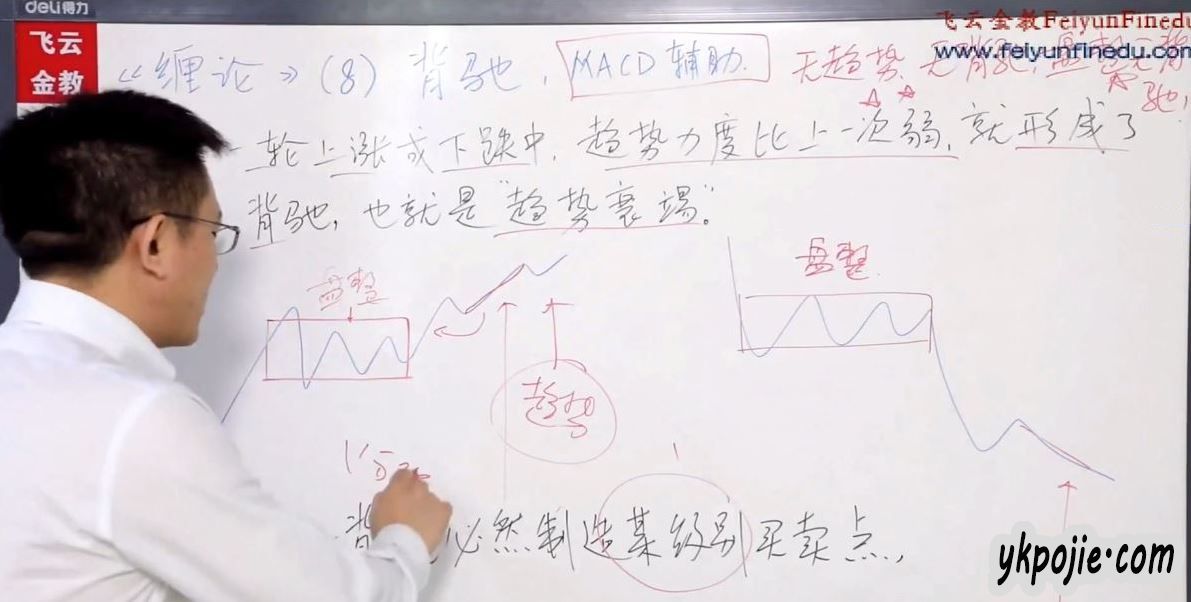 deli得力
飞云金教FeiyunFinedu
www.feiyunfinedu.com
飞云
金教
《缠论》(8) 背驰，MACD辅助.
无趋势、无背驰，盘整无背
驰！
一轮上涨或下跌中，趋势力度比上一次弱，就形成了
背驰，也就是“趋势衰竭”。
盘整
盘整
趋势
1'
背
必然制造某级别买卖点，
ykpojie.com